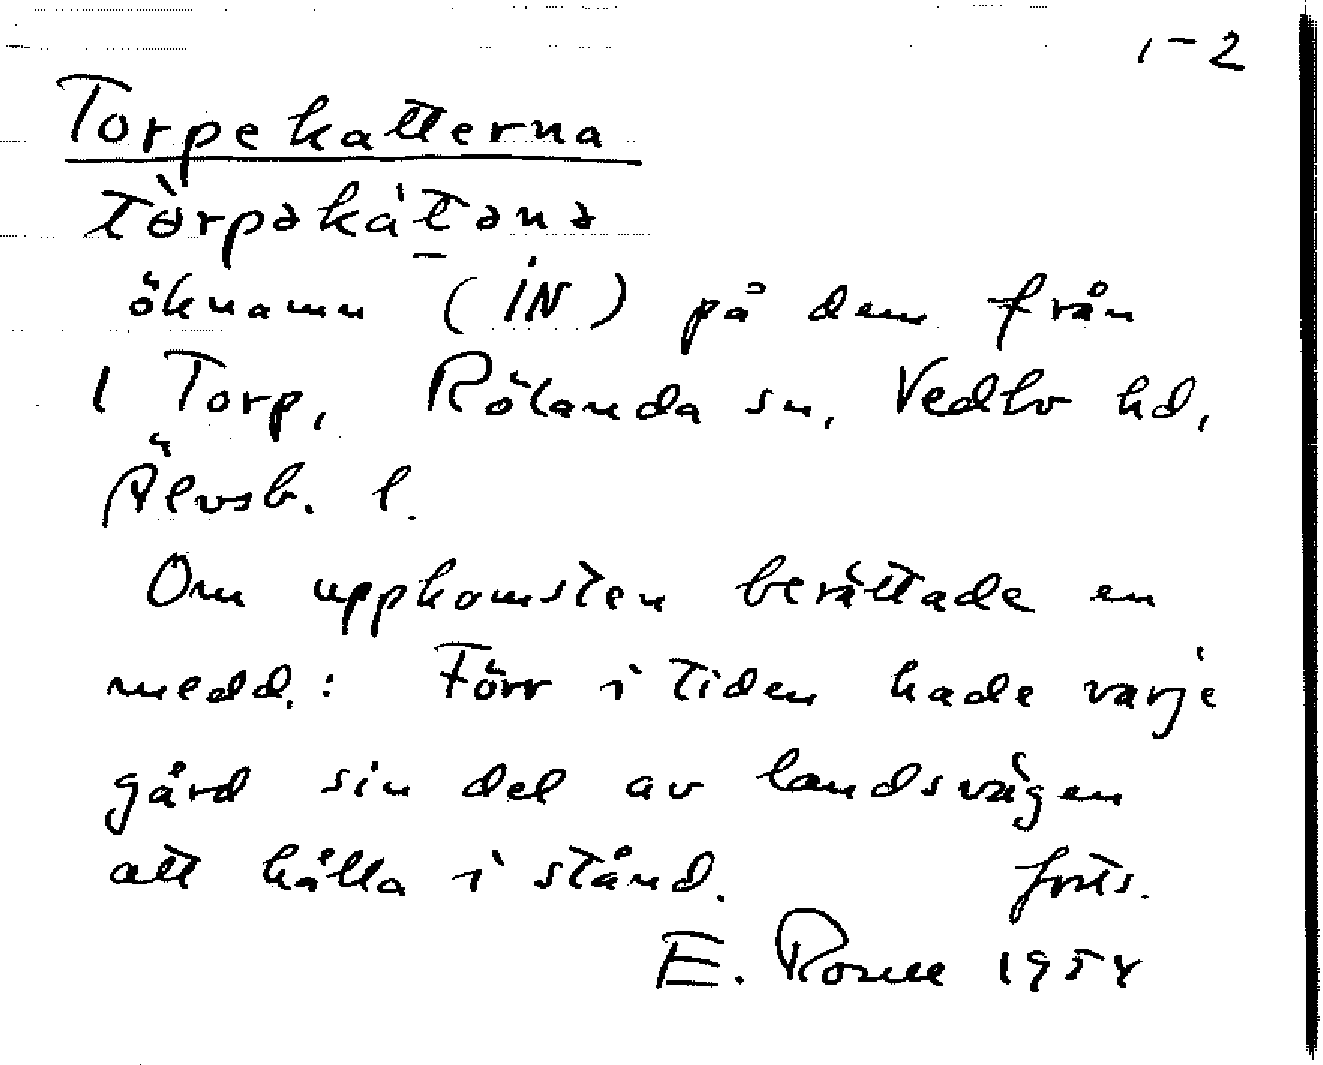 1-2
Torpekatterna
tö̀rpəkát̲əna
öknamn (IN) på dem från
1 Torp, Rölanda sn, Vedbo hd,
Älvsb. l.
Om uppkomsten berättade en
medd.: Förr i tiden hade varje
gård sin del av landsvägen
att hålla i stånd. forts.
E. Rosell 1954